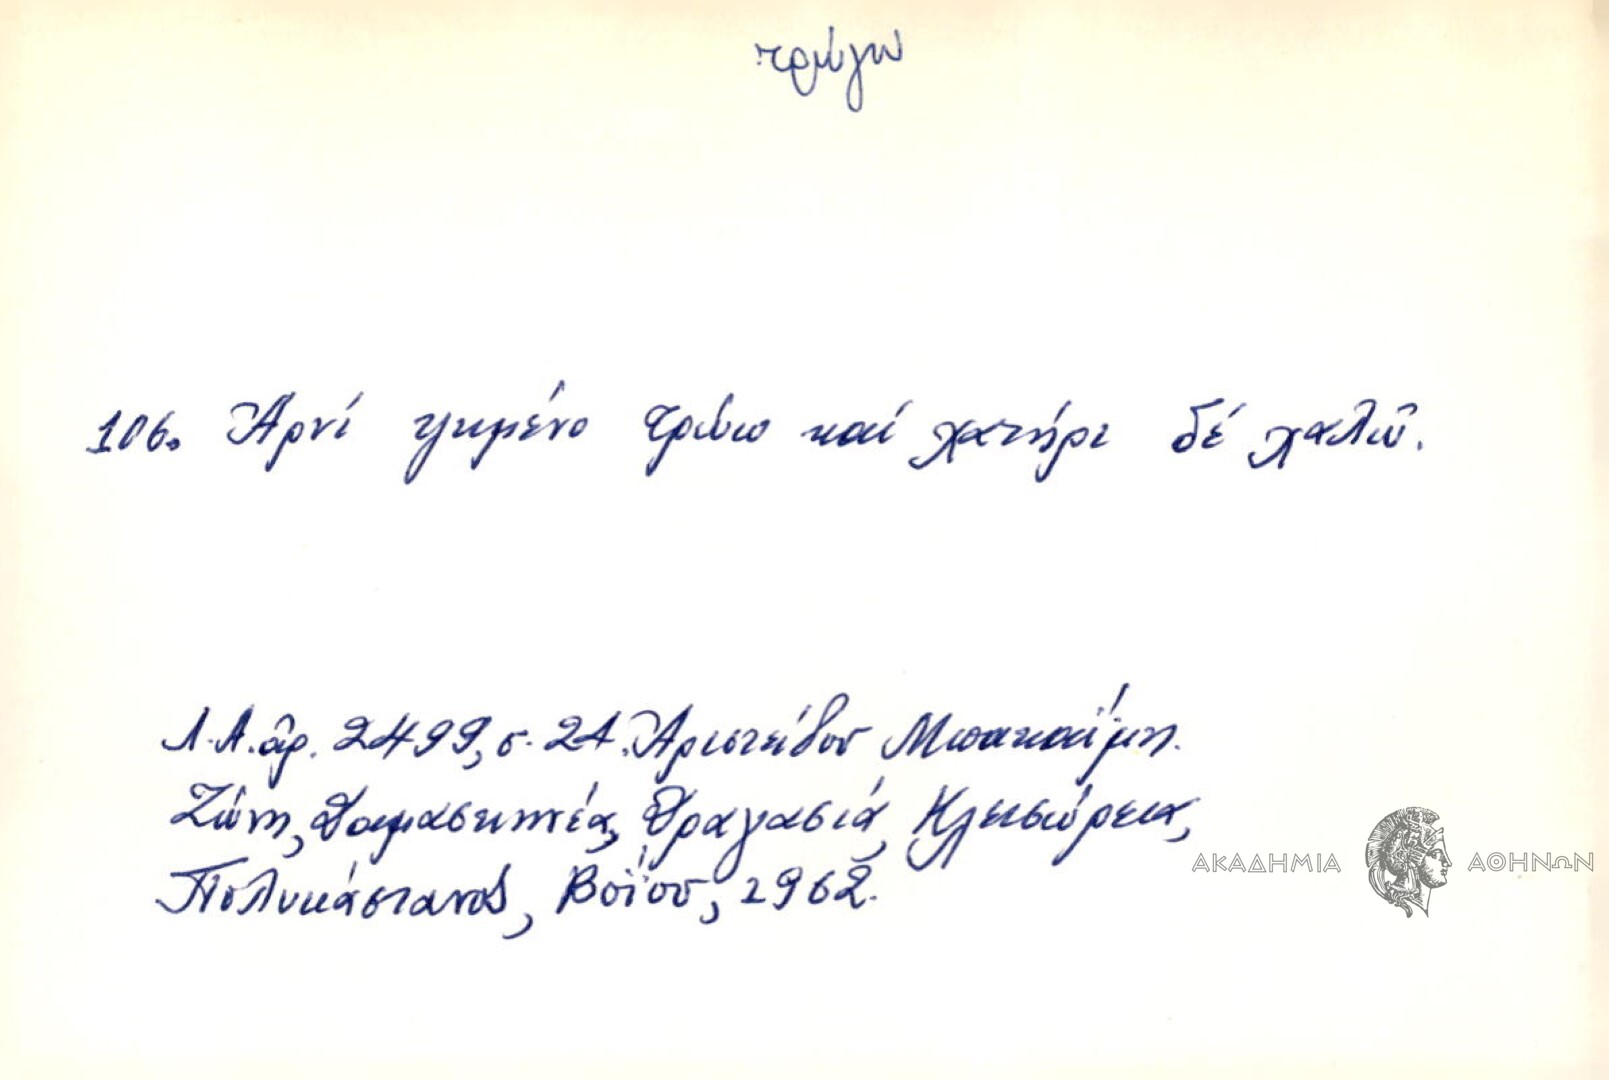 τρώγω
106. Ἀρνί ψημένο τρώω καί χατήρι δέ χαλῶ.
Λ.Α. ἀρ. 2499, σ. 21. Ἀριστείδου Μπακαΐμη.
Ζώνη, Δαμασκηνέα, Δραγασιά, Κλεισώρεια,
Πολυκάστανος, Βοΐου, 1962.
ΑΚΑΔΗΜΙΑ ΑΘΗΝΩΝ